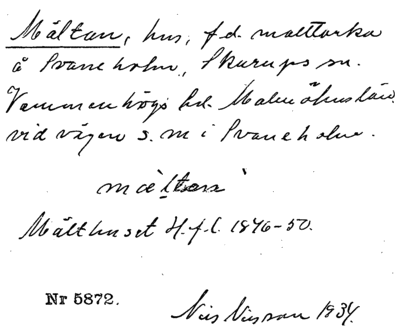 Mältan, hus, f.d. malttorka
å Svaneholm, Skurups sn.
Vemmenhögs hd. Malmöhus län.
vid vägen s. m i Svaneholm.
mältan
Mälthuset H.f.l. 1846-50.
Nr 5872.
Nils Nilsson 1934.